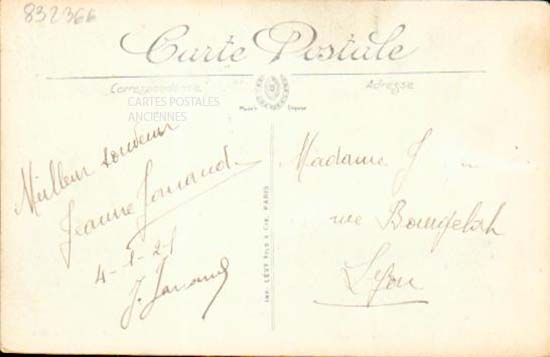 832366
Carte Postale
Correspondance
Adresse
CARTES POSTALES
ANCIENNES
Meilleur souvenir
Jeanne
4-1-21
J.
IMP. LÉVY FILS & CIE, PARIS
Madame J
rue Bourgelat
Lyon